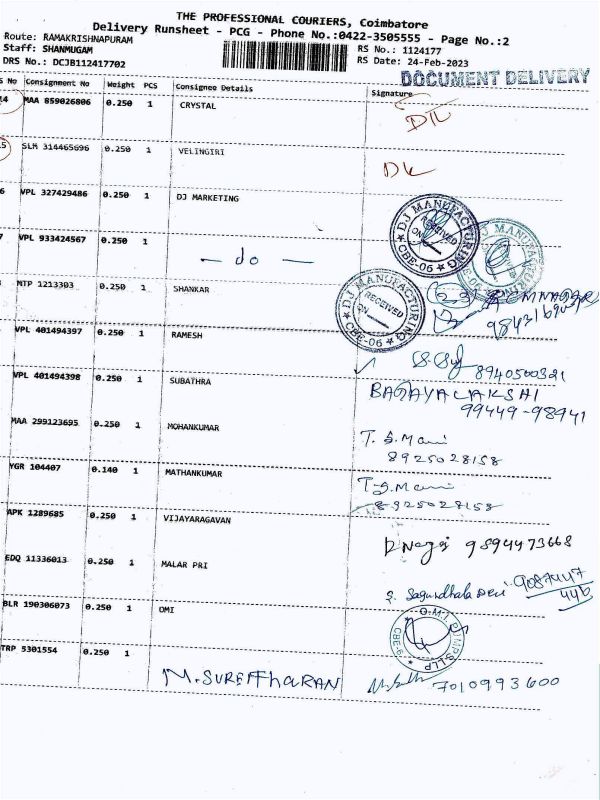 THE PROFESSIONAL COURIERS, Coimbatore
Delivery Runsheet - PCG - Phone No.:0422-3505555 - Page No.:2
Route: RAMAKRISHNAPURAM
Staff: SHANMUGAM RS No.: 1124177
DRS No.: DCJB112417702 RS Date: 24-Feb-2023
DOCUMENT DELIVERY
S No Consignment No Weight PCS Consignee Details Signature
14 MAA 859026806 0.250 1 CRYSTAL
15 SLM 314465696 0.250 1 VELINGIRI
6 VPL 327429486 0.250 1 DJ MARKETING
DJ MANUFACTURING
RECEIVED
ON
CBE-06
7 VPL 933424567 0.250 1 — do —
MTP 1213303 0.250 1 SHANKAR
DJ MANUFACTURING
RECEIVED
ON
CBE-06
VPL 401494397 0.250 1 RAMESH
8940500321
VPL 401494398 0.250 1 SUBATHRA
99449-98941
MAA 299123695 0.250 1 MOHANKUMAR
T. S. Mani
8925028158
YGR 104407 0.140 1 MATHANKUMAR
T. S. Mani
8925028158
APK 1289685 0.250 1 VIJAYARAGAVAN
9894473668
EDQ 11336013 0.250 1 MALAR PRI
9087447
446
BLR 190306073 0.250 1 OMI
O.M.I PUMPS LLP
CBE-6
TRP 5301554 0.250 1
7010993600